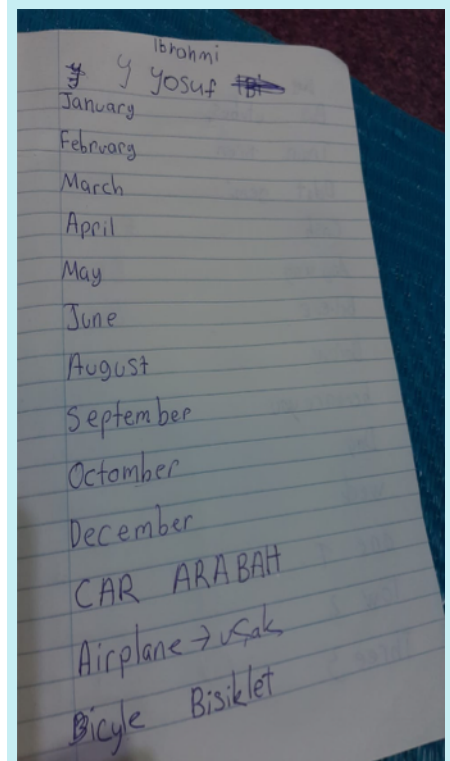 Ibrahmi
y Yosuf
January
February
March
April
May
June
August
September
Octomber
December
CAR ARABAH
Airplane → uçak
Bicyle Bisiklet